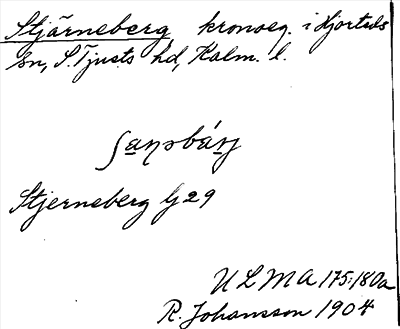 Stjärneberg kronoeg. i Hjorteds
sn, S. Tjusts hd, Kalm. l.
Stjerneberg G 29
ULMA 175:180a
R. Johansson 1904